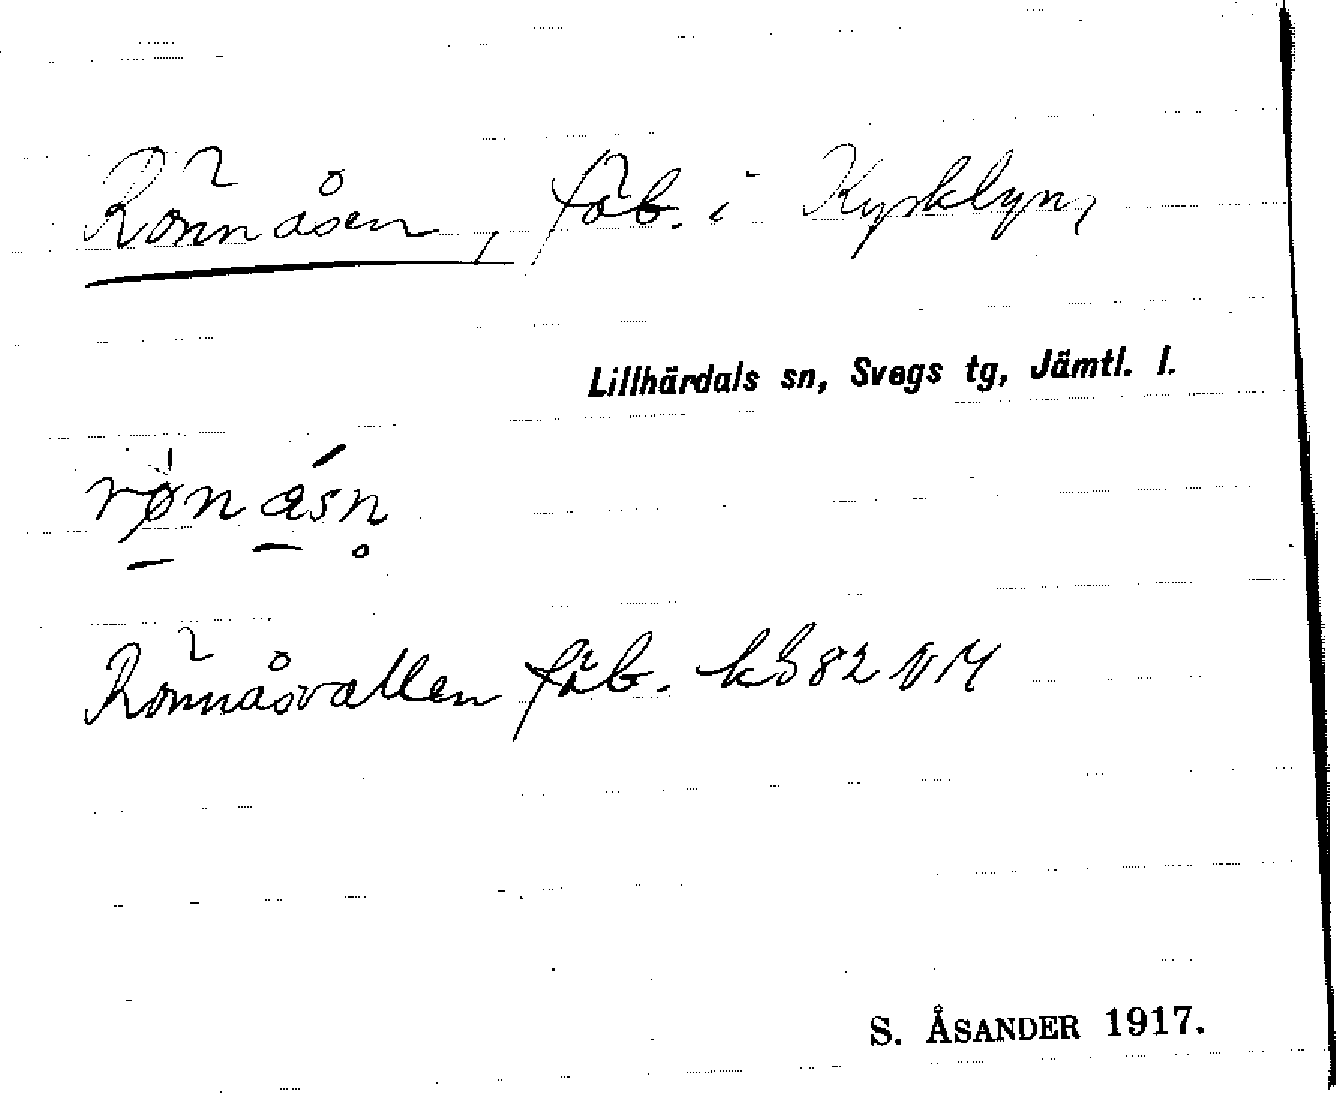 Rönnåsen, fäb. i
Lillhärdals sn, Svegs tg, Jämtl. l.
rønåsn
Rönnåsvallen fäb. kb 82 NM
S. ÅSANDER 1917.